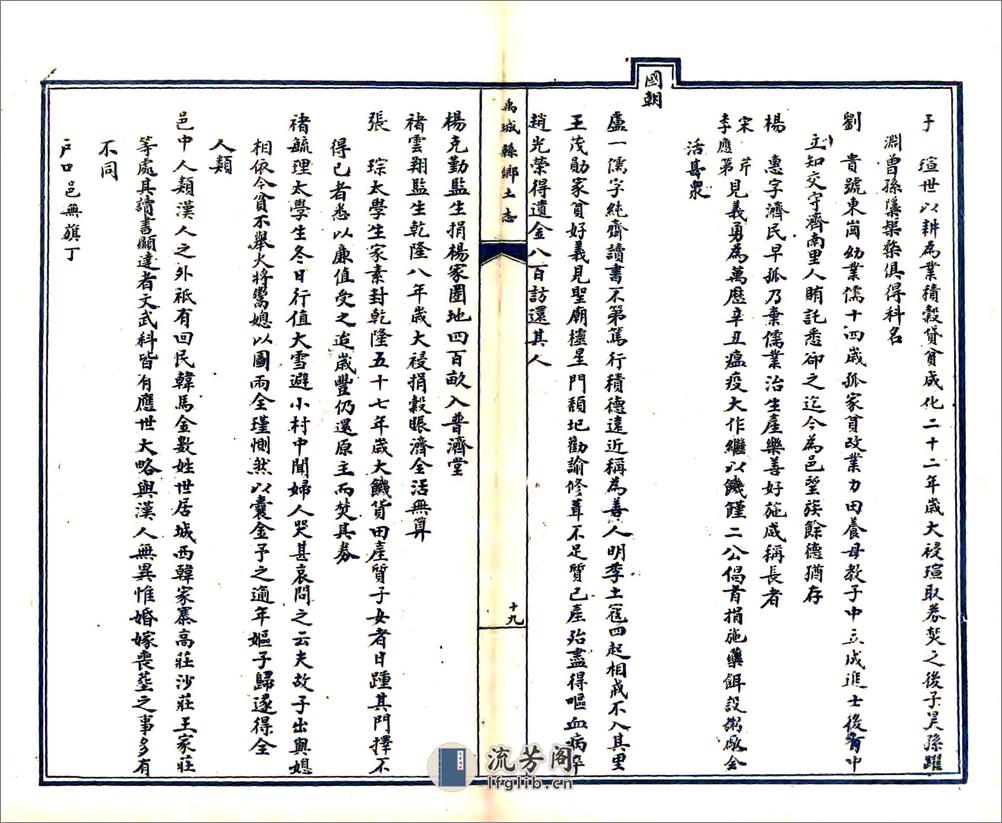 于　瑄世以耕為業積穀貸貧成化二十二年歲大祲瑄取券焚之後子昊孫躍
淵曾孫漢椝蘂俱得科名
劉　貴號東崗幼業儒十四歲孤家貧改業力田養母教子中立成進士後有中
立知交守濟南里人賄託悉卻之迄今為邑望族餘德猶存
楊　惠字濟民早孤乃棄儒業治生產樂善好施咸稱長者
宋　芹
李應第
見義勇為萬歷辛丑瘟疫大作繼以饑饉二公倡首捐施藥餌設粥廠全
活甚眾
國朝
盧一儒字純齋讀書不第篤行積德遠近稱為善人明季土寇四起相戒不入其里
王茂勛家貧好義見聖廟欞星門頹圮勸諭修葺不足質已產殆盡得嘔血病卒
趙光榮得遺金八百訪還其人
禹城縣鄉土志
十九
楊克勤監生捐楊家圈地四百畝入普濟堂
褚雲翔監生乾隆八年歲大祲捐穀賑濟全活無算
張　琮太學生家素封乾隆五十七年歲大饑貨田產質子女者日踵其門擇不
得已者悉以廉值受之迨歲豐仍還原主而焚其券
褚毓理太學生冬日行值大雪避小村中聞婦人哭甚哀問之云夫故子出與媳
相依今貧不舉火將鬻媳以圖兩全瑾惻然以囊金予之適年嫗子歸遂得全
人類
邑中人類漢人之外祇有回民韓馬金數姓世居城西韓家寨高莊沙莊王家莊
等處其讀書顯達者文武科皆有應世大略與漢人無異惟婚嫁喪塟之事多有
不同
戶口邑無旗丁
流芳阁
lfglib.cn